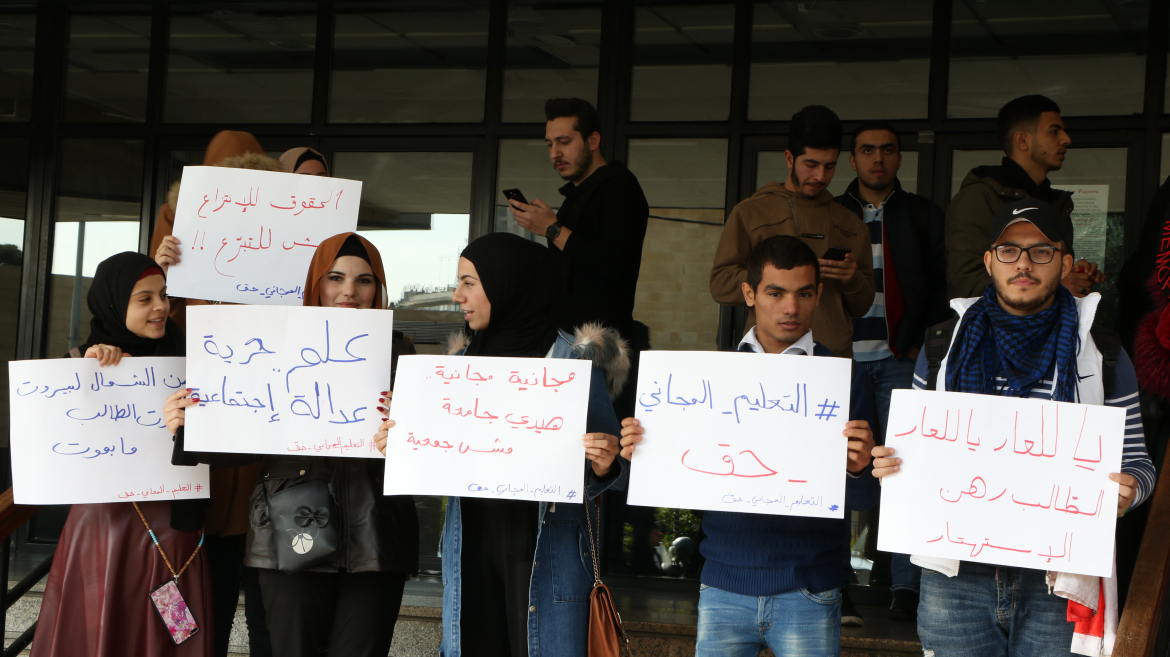 الحقوق للإنتزاع
مش للتبرّع !!
ـالمجاني_حق
ن الشمال لبيروت
ت الطالب
ما بموت
#التعليم_المجاني_حق
علم.. حرية
عدالة إجتماعية
#التعليم_المجاني_حق
مجانية مجانية..
هيدي جامعة
مش جمعية
#التعليم_المجاني_حق
#التعليم_المجاني
_حق
#التعليم_المجاني_حق
يا للعار يا للعار
الطالب رهن
الإستهتار